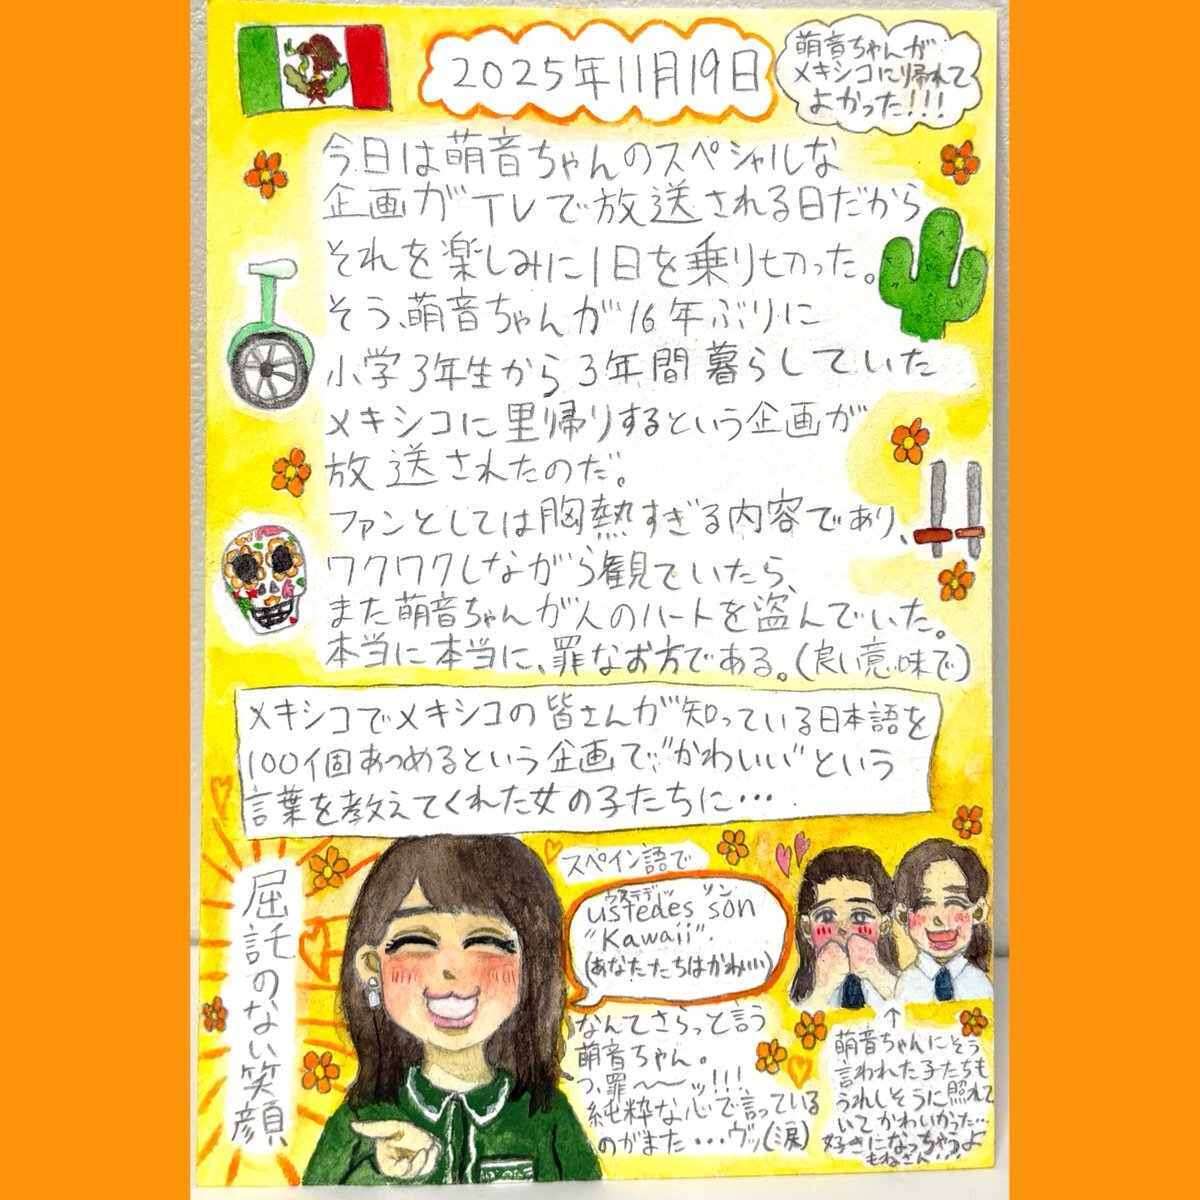 2025年11月19日
萌音ちゃんが
メキシコに帰れて
よかった!!!
今日は萌音ちゃんのスペシャルな
企画がTVで放送される日だから
それを楽しみに1日を乗り切った。
そう、萌音ちゃんが16年ぶりに
小学3年生から3年間暮らしていた
メキシコに里帰りするという企画が
放送されたのだ。
ファンとしては胸熱すぎる内容であり、
ワクワクしながら観ていたら、
また萌音ちゃんが人のハートを盗んでいた。
本当に本当に、罪なお方である。(良い意味で)
メキシコでメキシコの皆さんが知っている日本語を
100個あつめるという企画で、"かわいい"という
言葉を教えてくれた女の子たちに…
屈託のない笑顔
スペイン語で
ウステデッ ソン
ustedes son
"Kawaii".
(あなたたちはかわいい)
なんてさらっと言う
萌音ちゃん。
っ、罪〜〜ッ!!!
純粋な心で言っている
のがまた…ヴッ(涙)
↑
萌音ちゃんにそう
言われた子たちも
うれしそうに照れて
いてかわいかった…
好きになっちゃうよ
もねさん…!!